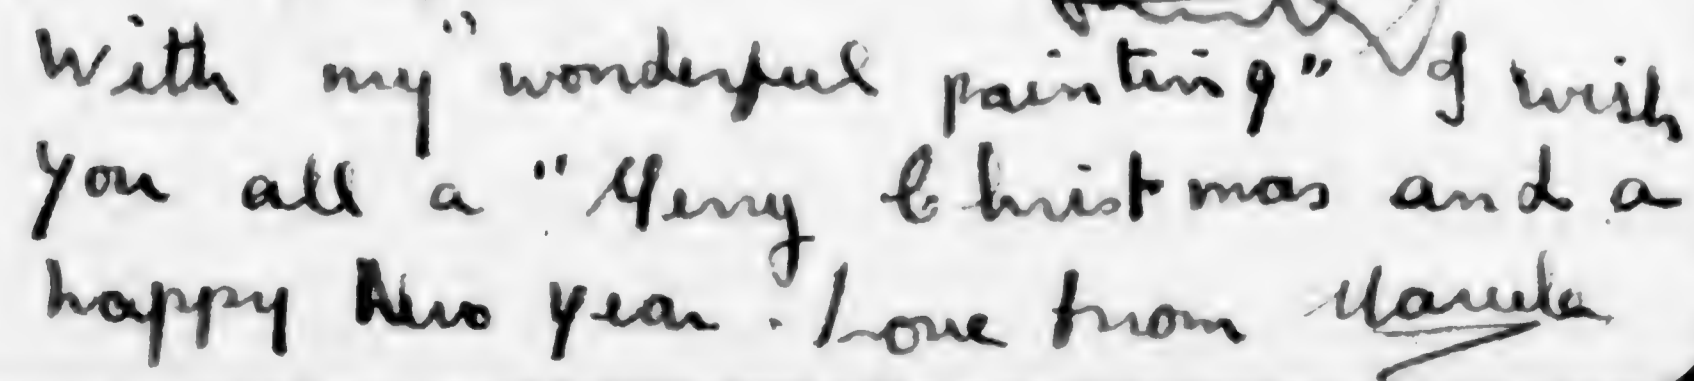 With my "wonderful painting" I wish
you all a "Merry Christmas and a
happy New Year. Love from